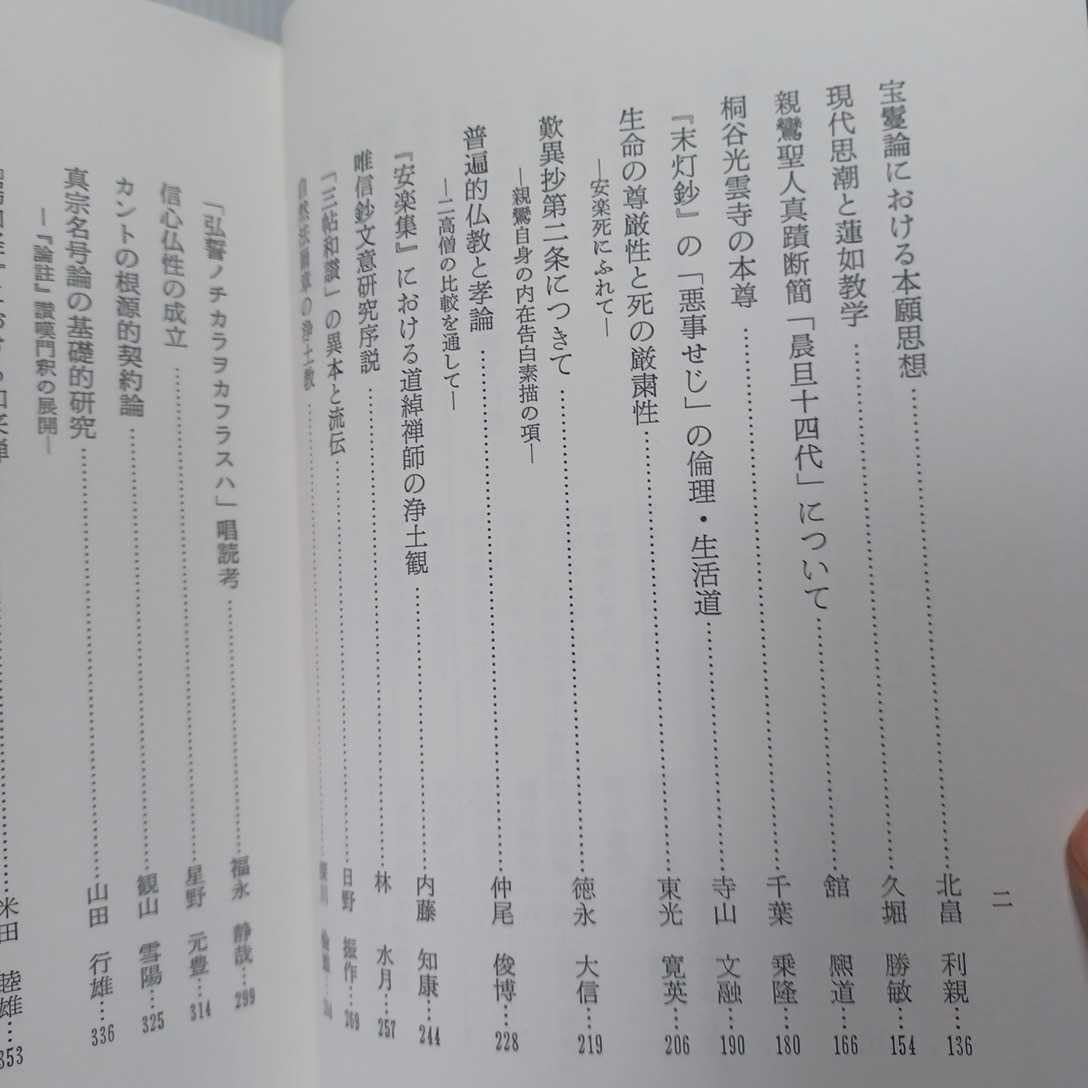 二
宝鬘論における本願思想……北畠 利親…136
現代思潮と蓮如教学……久堀 勝敏…154
親鸞聖人真蹟断簡「晨旦十四代」について……舘 熈道…166
桐谷光雲寺の本尊……千葉 乗隆…180
『末灯鈔』の「悪事せじ」の倫理・生活道……寺山 文融…190
生命の尊厳性と死の厳粛性……東光 寛英…206
―安楽死にふれて―
歎異抄第二条につきて……徳永 大信…219
―親鸞自身の内在告白素描の項―
普遍的仏教と孝論……仲尾 俊博…228
―二高僧の比較を通して―
『安楽集』における道綽禅師の浄土観……内藤 知康…244
唯信鈔文意研究序説……林 水月…257
「三帖和讃」の異本と流伝……日野 振作…269
自然法爾章の浄土教……
「弘誓ノチカラヲカフラスハ」唱読考……福永 静哉…299
信心仏性の成立……星野 元豊…314
カントの根源的契約論……観山 雪陽…325
真宗名号論の基礎的研究……山田 行雄…336
―『論註』讃嘆門釈の展開―
米田 睦雄…353